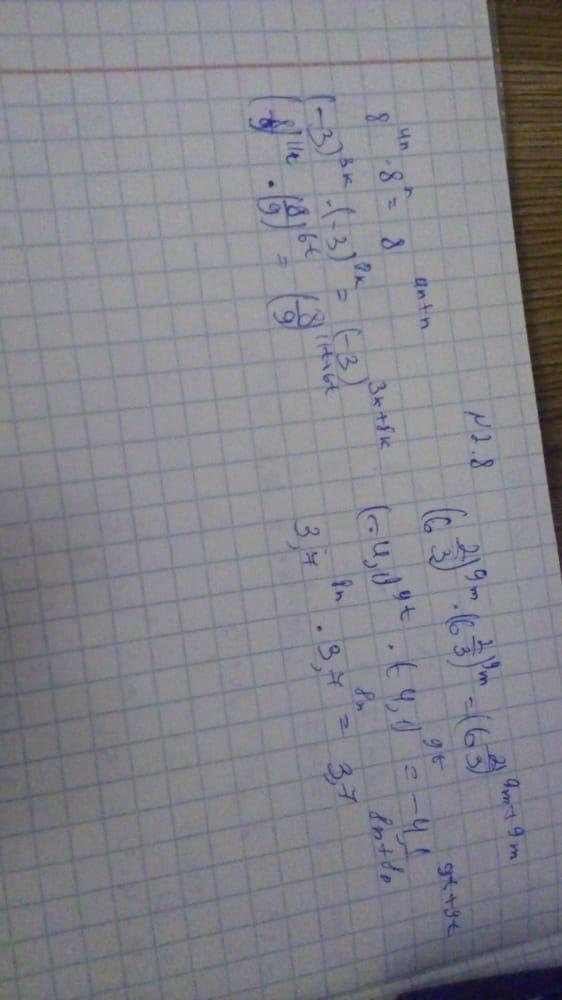 8^{4n} · 8^n = 8^{4n+n}
(-3)^{3k} · (-3)^{8k} = (-3)^{3k+8k}
(8/9)^{11t} · (8/9)^{6t} = (8/9)^{11t+6t}
N 2.8
(6 2/3)^{9m} · (6 2/3)^{9m} = (6 2/3)^{9m+9m}
(-4,1)^{9t} · (-4,1)^{9t} = -4,1^{9t+9t}
3,7^{8n} · 3,7^{8n} = 3,7^{8n+8n}